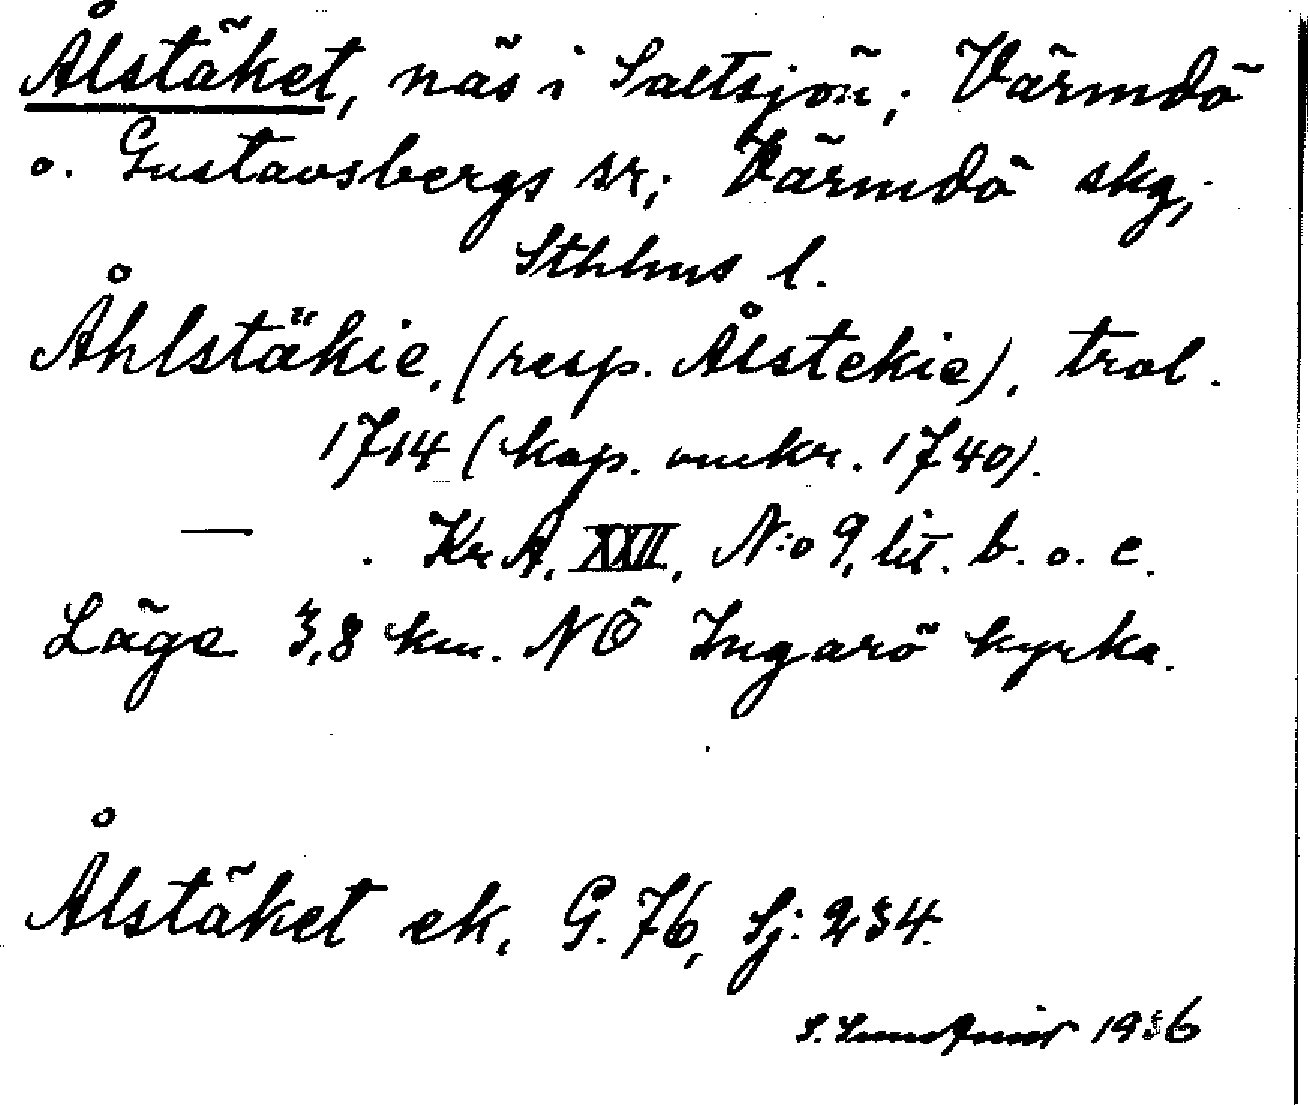 Ålstäket, näs i Saltsjön; Värmdö
o. Gustavsbergs sr; Värmdö skg,
Sthlms l.
Åhlstäkie, (resp. Ålstekie), trol.
1714 (kap. omkr. 1740).
— . KrA, XXII, N:o 9, lit. b. o. c.
Läge 3,8 km. NÖ Ingarö kyrka.
Ålstäket ek, G. 76, Sj: 234.
S. 1936